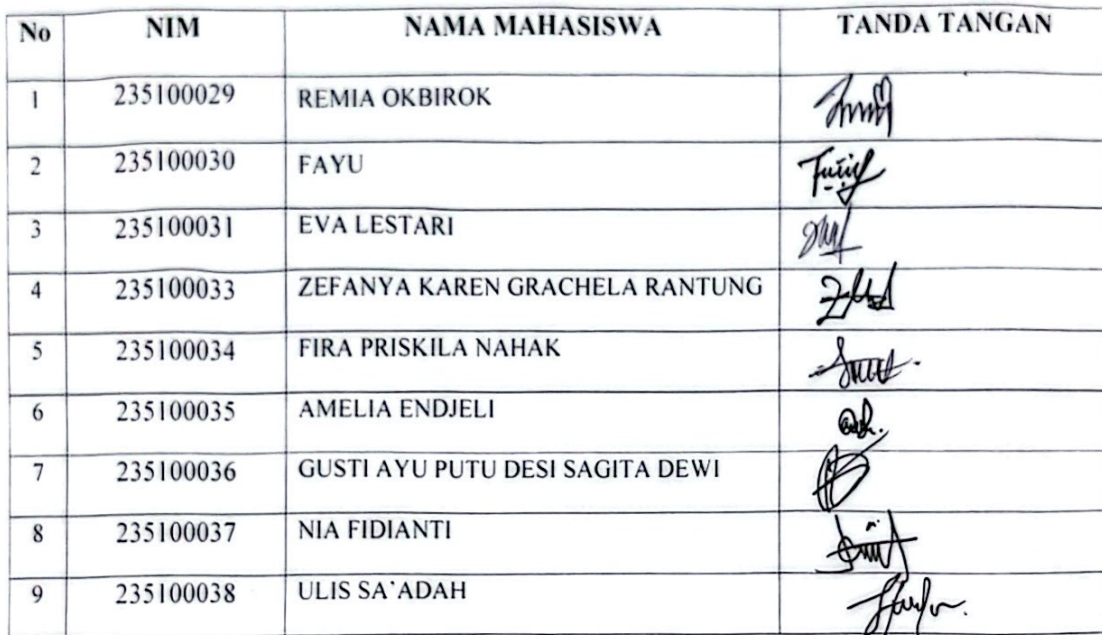 No NIM NAMA MAHASISWA TANDA TANGAN
1 235100029 REMIA OKBIROK
2 235100030 FAYU
3 235100031 EVA LESTARI
4 235100033 ZEFANYA KAREN GRACHELA RANTUNG
5 235100034 FIRA PRISKILA NAHAK
6 235100035 AMELIA ENDJELI
7 235100036 GUSTI AYU PUTU DESI SAGITA DEWI
8 235100037 NIA FIDIANTI
9 235100038 ULIS SA`ADAH